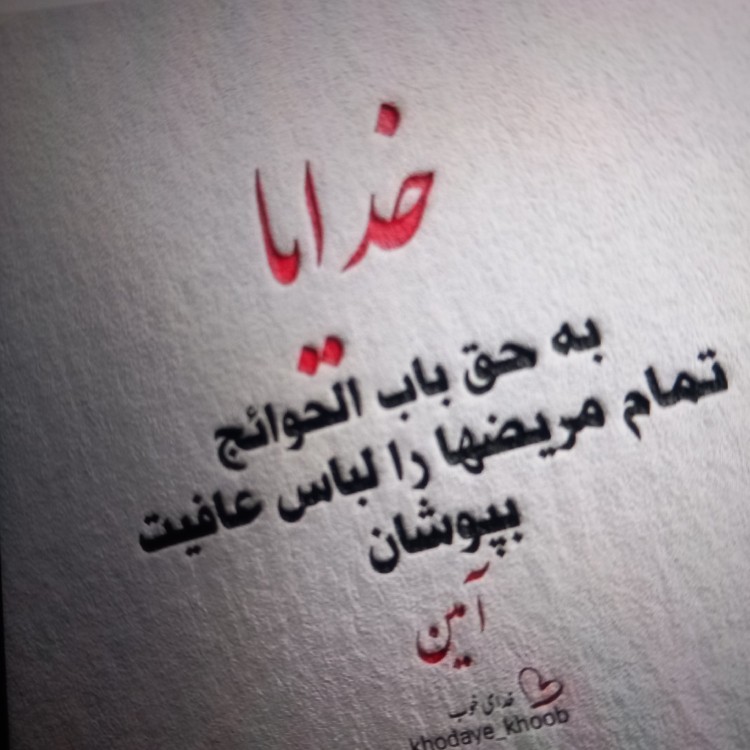 خدایا
به حق باب الحوائج
تمام مریضها را لباس عافیت
بپوشان
آمین
خدای خوب
khodaye_khoob